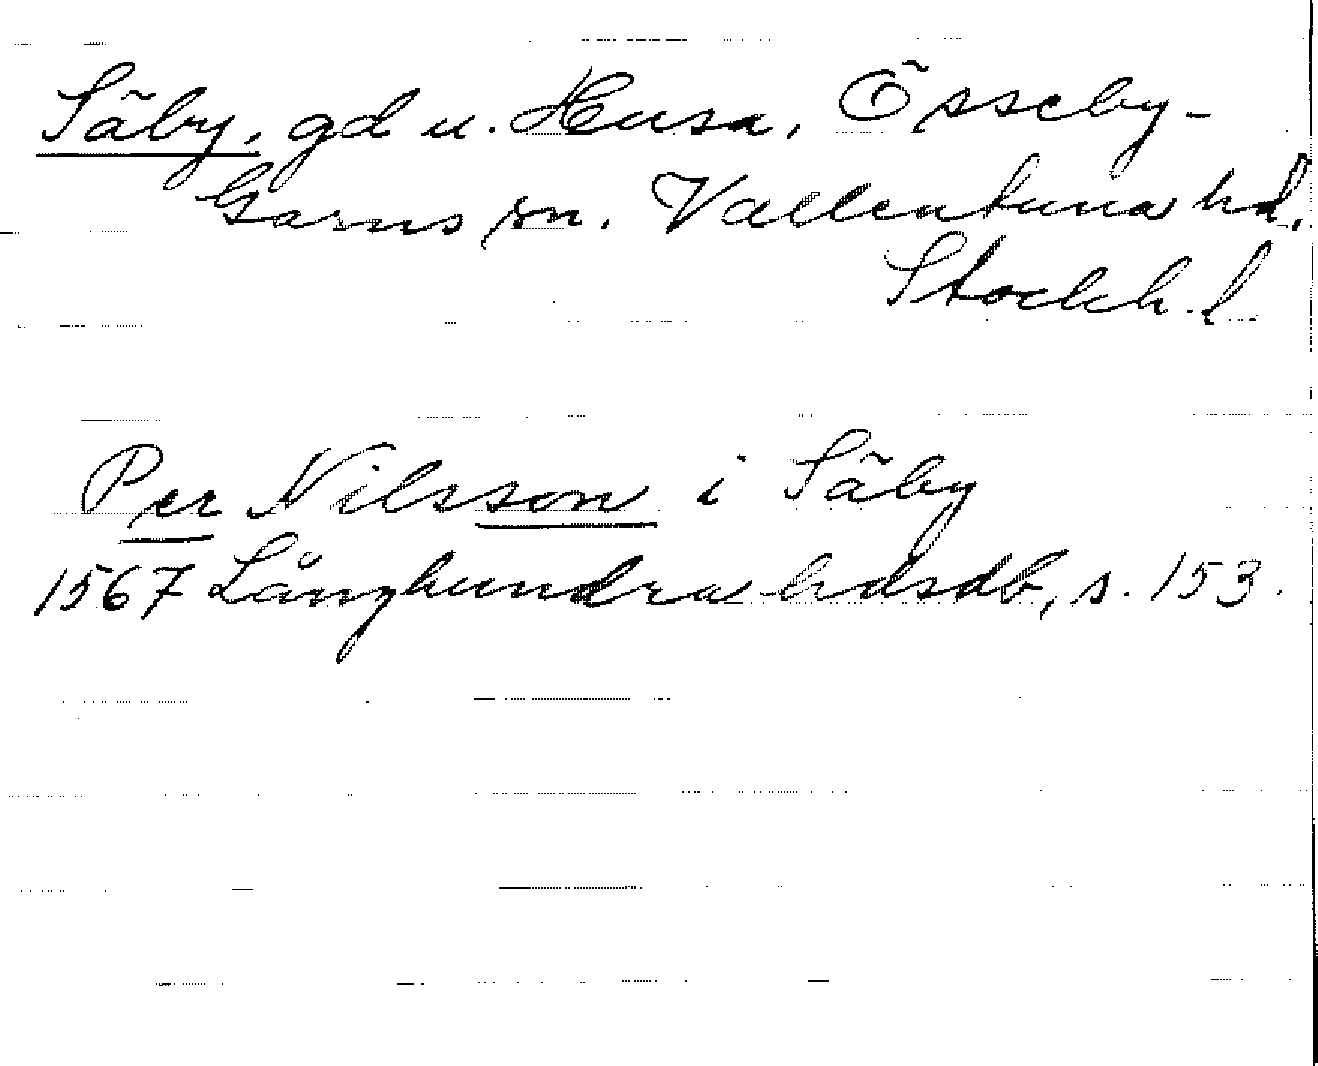 Säby, gd u. Husa, Össeby-
Garns sn. Vallentuna hd.
Stockh. l.
Per Nilsson i Säby
1567 Långhundra hdsdb, s. 153.